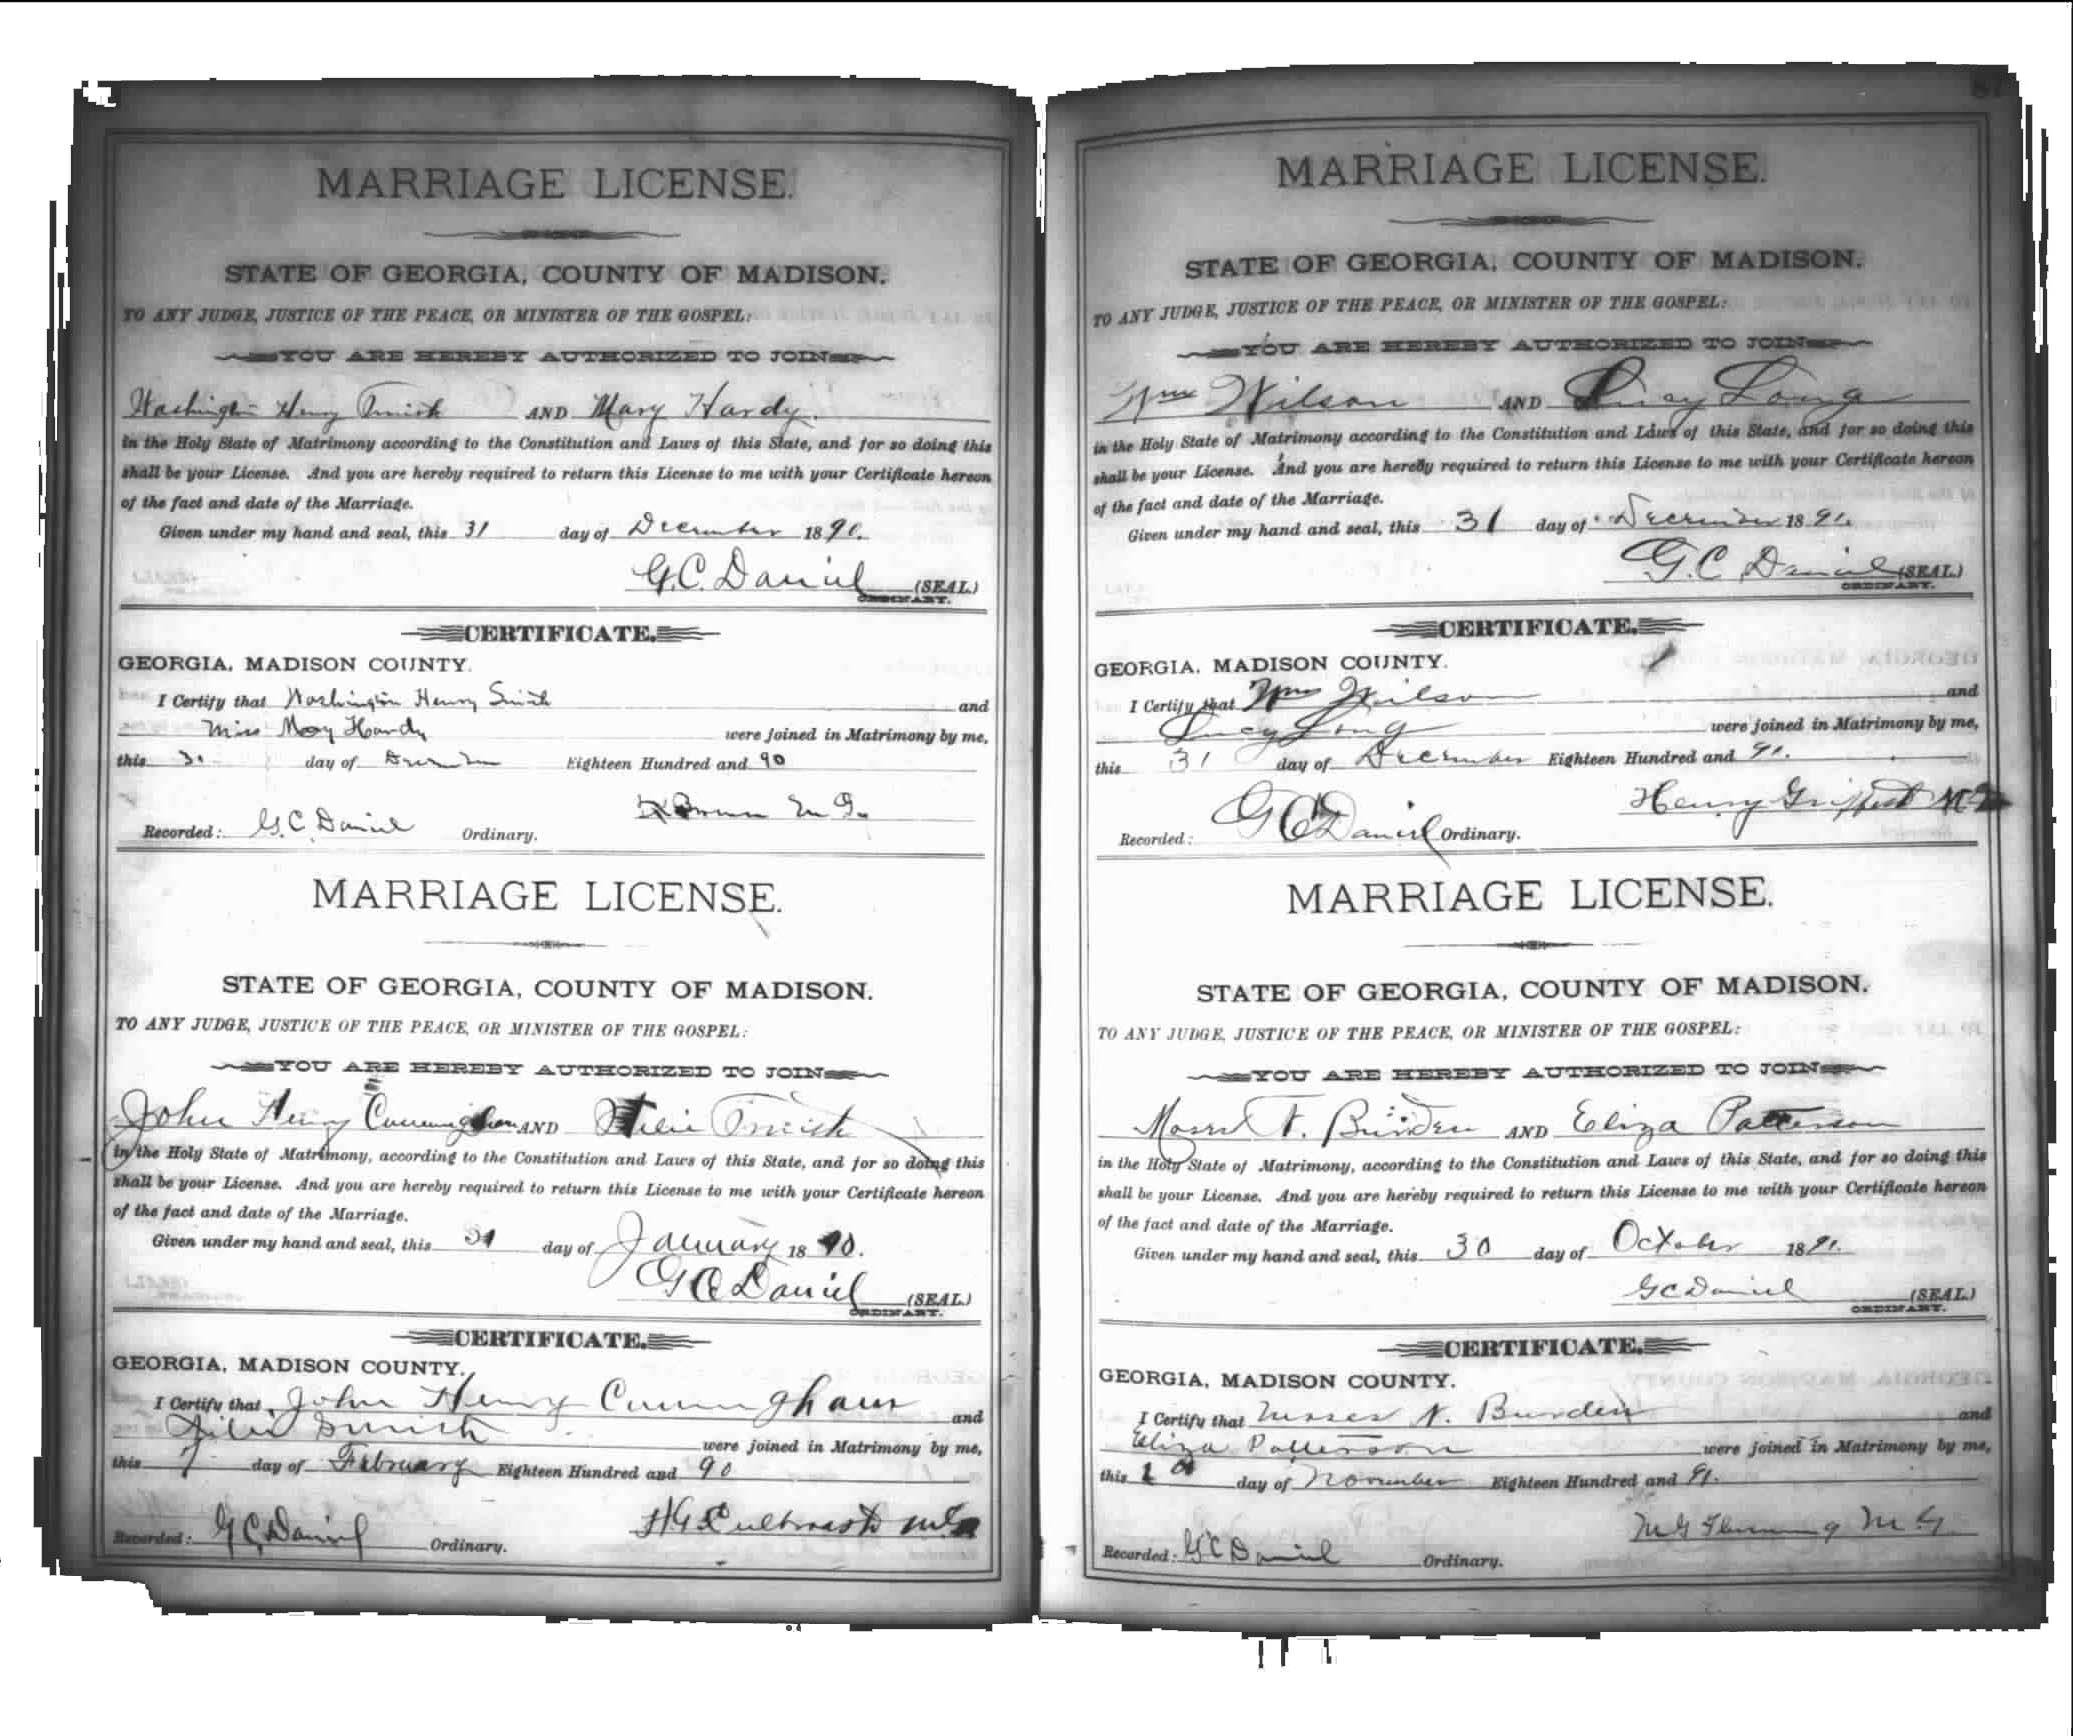 MARRIAGE LICENSE.
STATE OF GEORGIA, COUNTY OF MADISON.
TO ANY JUDGE, JUSTICE OF THE PEACE, OR MINISTER OF THE GOSPEL:
YOU ARE HEREBY AUTHORIZED TO JOIN
Washington Henry Smith AND Mary Hardy.
in the Holy State of Matrimony according to the Constitution and Laws of this State, and for so doing this
shall be your License. And you are hereby required to return this License to me with your Certificate hereon
of the fact and date of the Marriage.
Given under my hand and seal, this 31 day of December 1890.
G.C. Daniel (SEAL)
ORDINARY.
CERTIFICATE.
GEORGIA, MADISON COUNTY.
I Certify that Washington Henry Smith and
Miss May Hardy were joined in Matrimony by me,
this day of December Eighteen Hundred and 90
Recorded: G.C. Daniel Ordinary.
MARRIAGE LICENSE.
STATE OF GEORGIA, COUNTY OF MADISON.
TO ANY JUDGE, JUSTICE OF THE PEACE, OR MINISTER OF THE GOSPEL:
YOU ARE HEREBY AUTHORIZED TO JOIN
John Henry Cunningham AND Smith
in the Holy State of Matrimony, according to the Constitution and Laws of this State, and for so doing this
shall be your License. And you are hereby required to return this License to me with your Certificate hereon
of the fact and date of the Marriage.
Given under my hand and seal, this 31 day of January 1890.
G C Daniel (SEAL)
ORDINARY.
CERTIFICATE.
GEORGIA, MADISON COUNTY.
I Certify that John Henry Cunningham and
Smith were joined in Matrimony by me,
this day of February Eighteen Hundred and 90
Recorded: G C Daniel Ordinary.
MARRIAGE LICENSE.
STATE OF GEORGIA, COUNTY OF MADISON.
TO ANY JUDGE, JUSTICE OF THE PEACE, OR MINISTER OF THE GOSPEL:
YOU ARE HEREBY AUTHORIZED TO JOIN
Wm Wilson AND Lucy Long
in the Holy State of Matrimony according to the Constitution and Laws of this State, and for so doing this
shall be your License. And you are hereby required to return this License to me with your Certificate hereon
of the fact and date of the Marriage.
Given under my hand and seal, this 31 day of December 1891.
G.C. Daniel (SEAL)
ORDINARY.
CERTIFICATE.
GEORGIA, MADISON COUNTY.
I Certify that Wm Wilson and
Lucy Long were joined in Matrimony by me,
this 31 day of December Eighteen Hundred and 91.
Henry
Recorded: G C Daniel Ordinary.
MARRIAGE LICENSE.
STATE OF GEORGIA, COUNTY OF MADISON.
TO ANY JUDGE, JUSTICE OF THE PEACE, OR MINISTER OF THE GOSPEL:
YOU ARE HEREBY AUTHORIZED TO JOIN
Moses N. Burden AND Eliza Patterson
in the Holy State of Matrimony, according to the Constitution and Laws of this State, and for so doing this
shall be your License. And you are hereby required to return this License to me with your Certificate hereon
of the fact and date of the Marriage.
Given under my hand and seal, this 30 day of October 1891.
G C Daniel (SEAL)
ORDINARY.
CERTIFICATE.
GEORGIA, MADISON COUNTY.
I Certify that Moses N. Burden and
Eliza Patterson were joined in Matrimony by me,
this day of November Eighteen Hundred and 91.
M G
Recorded: G C Daniel Ordinary.